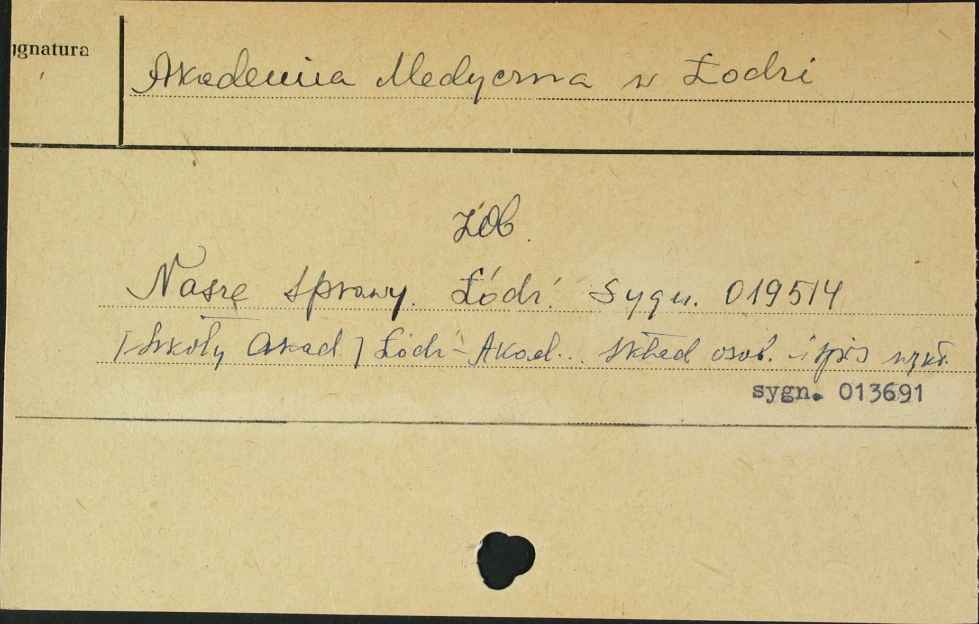 ygnatura
Akademia Medyczna w Łodzi
Zob.
Nasze sprawy. Łódź. Sygn. 019514
[Szkoły Akad] Łódź - Akad... Skład osob. i spis wykł.
sygn. 013691